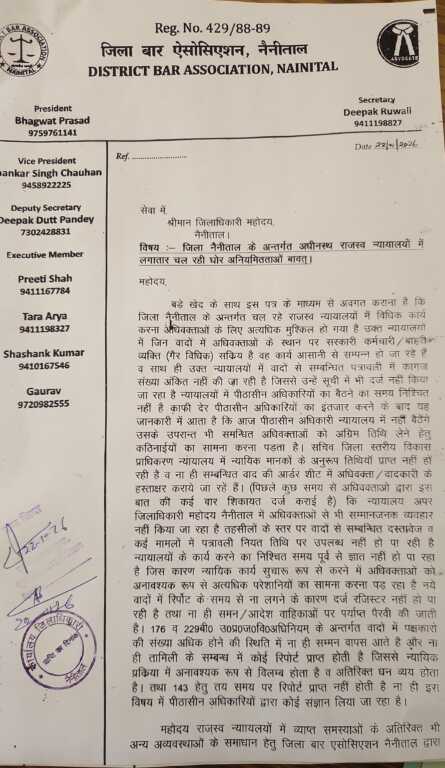 Reg. No. 429/88-89
जिला बार ऐसोसिएशन, नैनीताल
DISTRICT BAR ASSOCIATION, NAINITAL
BAR ASSOCIATION
NAINITAL
ADVOCATE
President
Bhagwat Prasad
9759761141
Secretary
Deepak Ruwali
9411198827
Vice President
ankar Singh Chauhan
9458922225
Deputy Secretary
Deepak Dutt Pandey
7302428831
Executive Member
Preeti Shah
9411167784
Tara Arya
9411198327
Shashank Kumar
9410167546
Gaurav
9720982555
Ref.
Date
सेवा में,
श्रीमान जिलाधिकारी महोदय,
नैनीताल।
विषय :– जिला नैनीताल के अन्तर्गत अधीनस्थ राजस्व न्यायालयों में
लगातार चल रही घोर अनियमितताओं बावत्।
महोदय,
बड़े खेद के साथ इस पत्र के माध्यम से अवगत कराना है कि
जिला नैनीताल के अन्तर्गत चल रहे राजस्व न्यायालयों में विधिक कार्य
करना अधिवक्ताओं के लिए अत्यधिक मुश्किल हो गया है उक्त न्यायालयो
में जिन वादों में अधिवक्ताओं के स्थान पर सरकारी कर्मचारी/बाहरी
व्यक्ति (गैर विधिक) सक्रिय है वह कार्य आसानी से सम्पन्न हो जा रहे हैं
व साथ ही उक्त न्यायालयों में वादो से सम्बन्धित पत्रावली में कागज
संख्या अंकित नहीं की जा रही है जिससे उन्हे सूची में भी दर्ज नहीं किया
जा रहा है न्यायालयों में पीठासीन अधिकारियों का बैठने का समय निश्चित
नहीं है काफी देर पीठासीन अधिकारियों का इंतजार करने के बाद यह
जानकारी में आता है कि आज पीठासीन अधिकारी न्यायालय में नहीं बैठेंगे
उसके उपरान्त भी सम्बन्धित अधिवक्ताओं को अग्रिम तिथि लेने हेतु
कठिनाईयों का सामना करना पड़ता है। सचिव जिला स्तरीय विकास
प्राधिकरण न्यायालय में न्यायिक मानको के अनुरूप तिथियाँ प्राप्त नहीं हो
रही है व ना ही सम्बन्धित वाद की आर्डर शीट में अधिवक्ता/वादकारी के
हस्ताक्षर कराये जा रहे हैं। (पिछले कुछ समय से अधिवक्ताओ द्वारा इस
बात की कई बार शिकायत दर्ज कराई है) कि न्यायालय अपर
जिलाधिकारी महोदय नैनीताल में अधिवक्ताओं से भी सम्मानजनक व्यवहार
नहीं किया जा रहा है तहसीलों के स्तर पर वादों से सम्बन्धित दस्तावेज व
कई मामलों में पत्रावली नियत तिथि पर उपलब्ध नहीं हो पा रही है
न्यायालयों के कार्य करने का निश्चित समय पूर्व से ज्ञात नहीं हो पा रहा
है जिस कारण न्यायिक कार्य सुचारू रूप से करने में अधिवक्ताओं को
अनावश्यक रूप से अत्यधिक परेशानियों का सामना करना पड़ रहा है नये
वादों में रिर्पोट के समय से ना लगने के कारण दर्ज रजिस्टर नहीं हो पा
रही है तथा ना ही समन/आदेश वाहिकाओं पर पर्याप्त पैरवी की जाती
है। 176 व 229बी0 उ0प्र0ज0वि0अधिनियम् के अन्तर्गत वादों में पक्षकारों
की संख्या अधिक होने की स्थिति में ना ही सम्मन वापस आते है और ना
ही तामिली के सम्बन्ध में कोई रिपोर्ट प्राप्त होती है जिससे न्यायिक
प्रक्रिया में अनावश्यक रूप से विलम्ब होता है व अतिरिक्त धन व्यय होता
है। तथा 143 हेतु तय समय पर रिपोर्ट प्राप्त नहीं होती है ना ही इस
विषय में पीठासीन अधिकारियों द्वारा कोई संज्ञान लिया जा रहा है।
महोदय राजस्व न्यायालयों में व्याप्त समस्याओं के अतिरिक्त भी
अन्य अव्यवस्थाओं के समाधान हेतु जिला बार एसोसिएशन नैनीताल द्वारा
कार्यालय जिलाधिकारी
नैनीताल